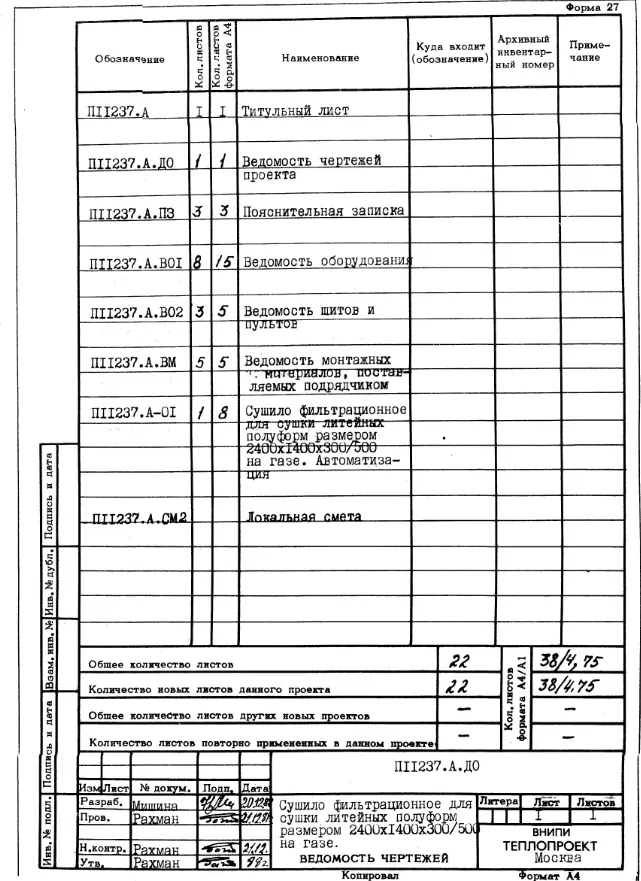 Форма 27
Обозначение
Кол. листов
Кол. листов формата А4
Наименование
Куда входит (обозначение)
Архивный инвентарный номер
Примечание
ПII237.А I I Титульный лист
ПII237.А.ДО 1 1 Ведомость чертежей
проекта
ПII237.А.ПЗ 3 3 Пояснительная записка
ПII237.А.ВОI 8 15 Ведомость оборудования
ПII237.А.ВО2 3 5 Ведомость щитов и
пультов
ПII237.А.ВМ 5 5 Ведомость монтажных
материалов, постав-
ляемых подрядчиком
ПII237.А-ОI 1 8 Сушило фильтрационное
для сушки литейных
полуформ размером
2400хI400х300/500
на газе. Автоматиза-
ция
ПII237.А.СМ2 Локальная смета
Общее количество листов 22
Количество новых листов данного проекта 22
Общее количество листов других новых проектов —
Количество листов повторно примененных в данном проекте —
Кол. листов формата А4/А1
38/4,75
38/4,75
—
—
Инв. № подл.
Подпись и дата
Взам. инв. №
Инв. № дубл.
Подпись и дата
ПII237.А.ДО
Изм Лист № докум. Подп. Дата
Разраб. Мишина
Пров. Рахман
Н.контр. Рахман
Утв. Рахман
Сушило фильтрационное для
сушки литейных полуформ
размером 2400хI400х300/500
на газе.
ВЕДОМОСТЬ ЧЕРТЕЖЕЙ
Литера Лист Листов
I I
ВНИПИ
ТЕПЛОПРОЕКТ
Москва
Копировал Формат А4